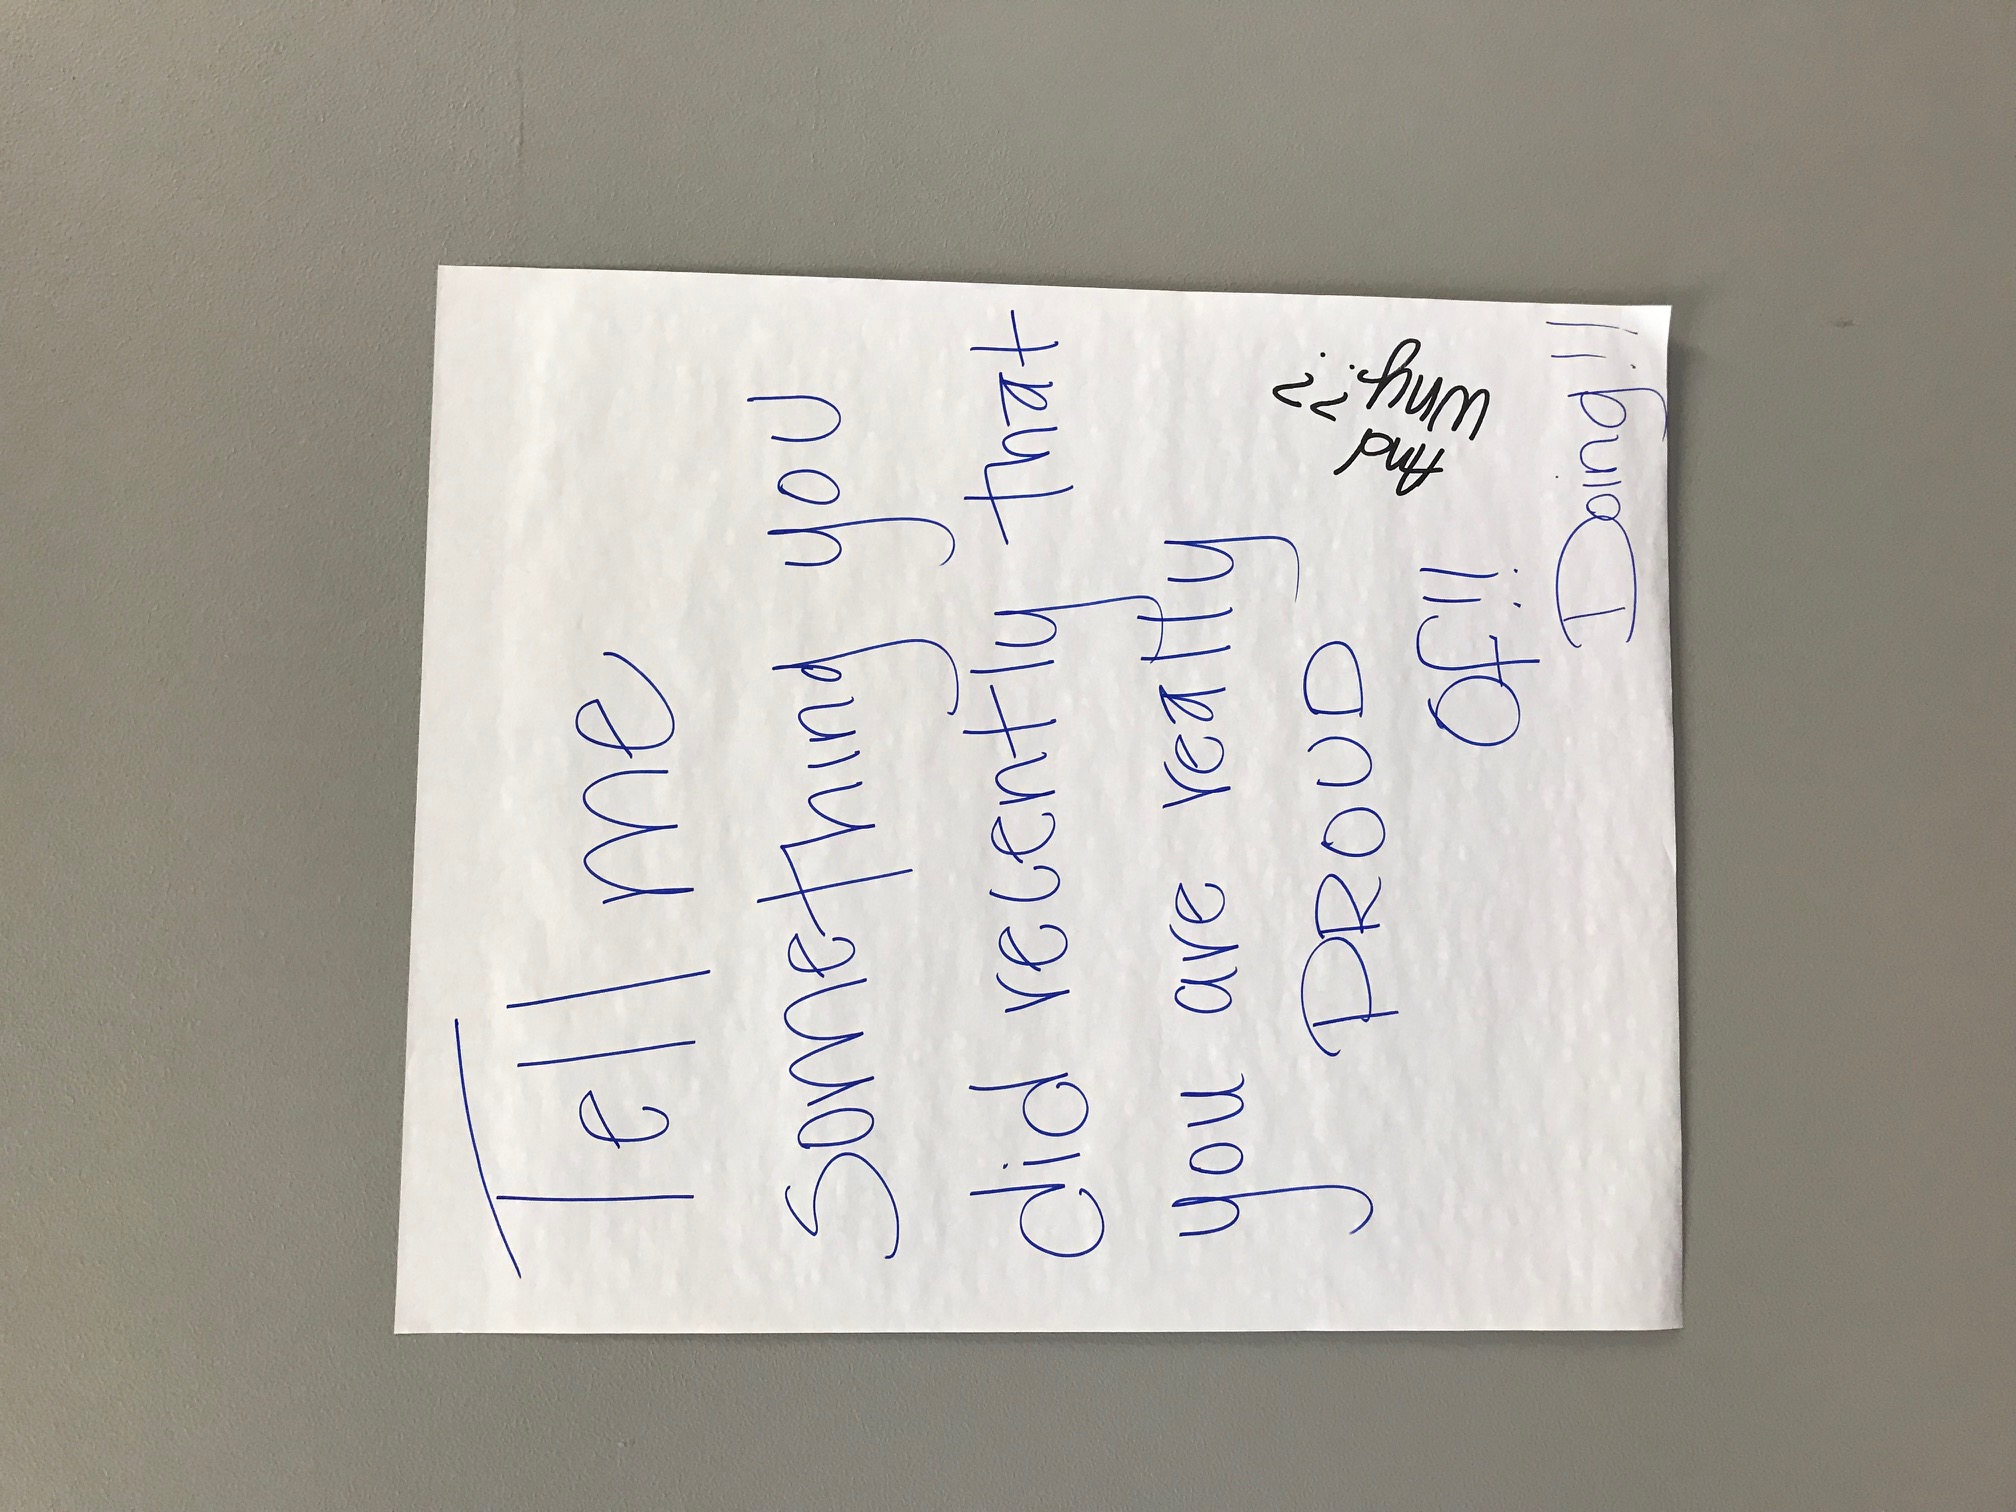 Tell me
something you
did recently that
you are really
PROUD
Of!!
Doing!!
And
Why??